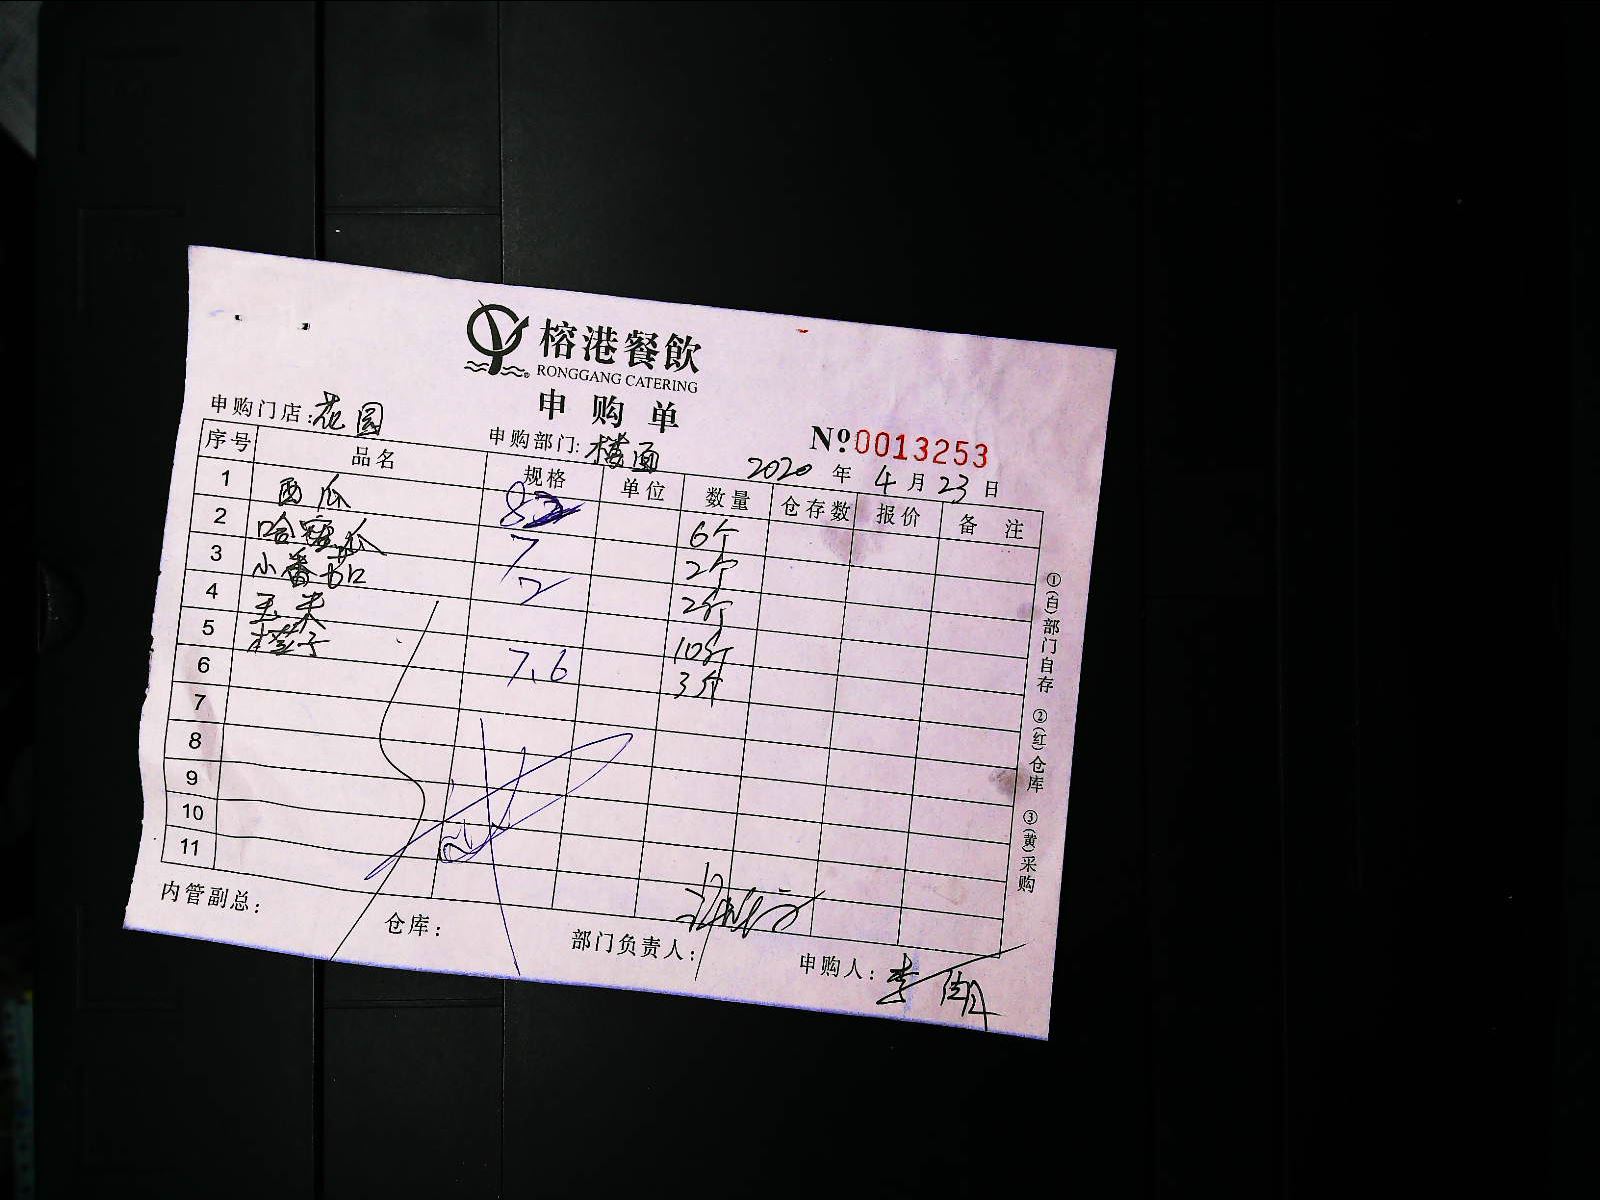 榕港餐飲
RONGGANG CATERING
申购单
申购门店:花园 申购部门:楼面 2020年4月23日
№0013253
序号 品名 规格 单位 数量 仓存数 报价 备注
1 西瓜 6个
2 哈密瓜 7 2个
3 小番茄 2 2斤
4 玉米 10斤
5 橙子 7.6 3斤
6
7
8
9
10
11
①(白)部门自存 ②(红)仓库 ③(黄)采购
内管副总: 仓库: 部门负责人: 申购人:李